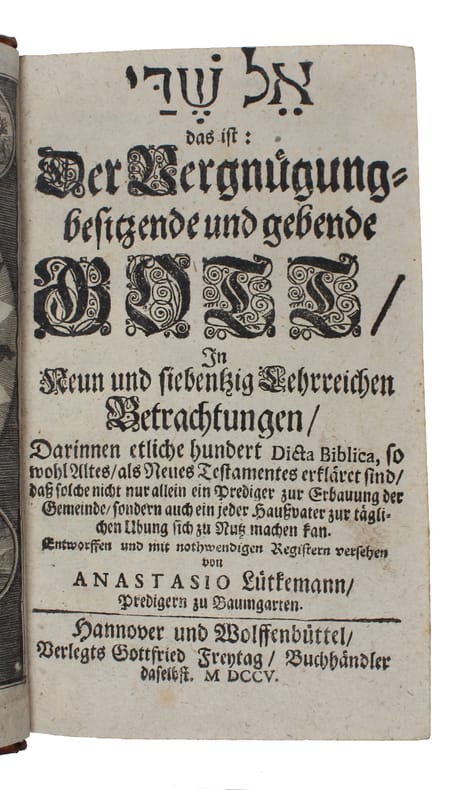 אֵל שַׁדַּי
das ist:
Der Vergnügung-
besitzende und gebende
GOTT/
In
Neun und siebentzig Lehrreichen
Betrachtungen/
Darinnen etliche hundert Dicta Biblica, so
wohl Altes/als Neues Testamentes erkläret sind/
daß solche nicht nur allein ein Prediger zur Erbauung der
Gemeinde/sondern auch ein jeder Haußvater zur tägli-
chen Ubung sich zu Nutz machen kan.
Entworffen und mit nothwendigen Registern versehen
von
ANASTASIO Lütkemann/
Predigern zu Baumgarten.
Hannover und Wolffenbüttel/
Verlegts Gottfried Freytag/ Buchhändler
daselbst. M DCCV.